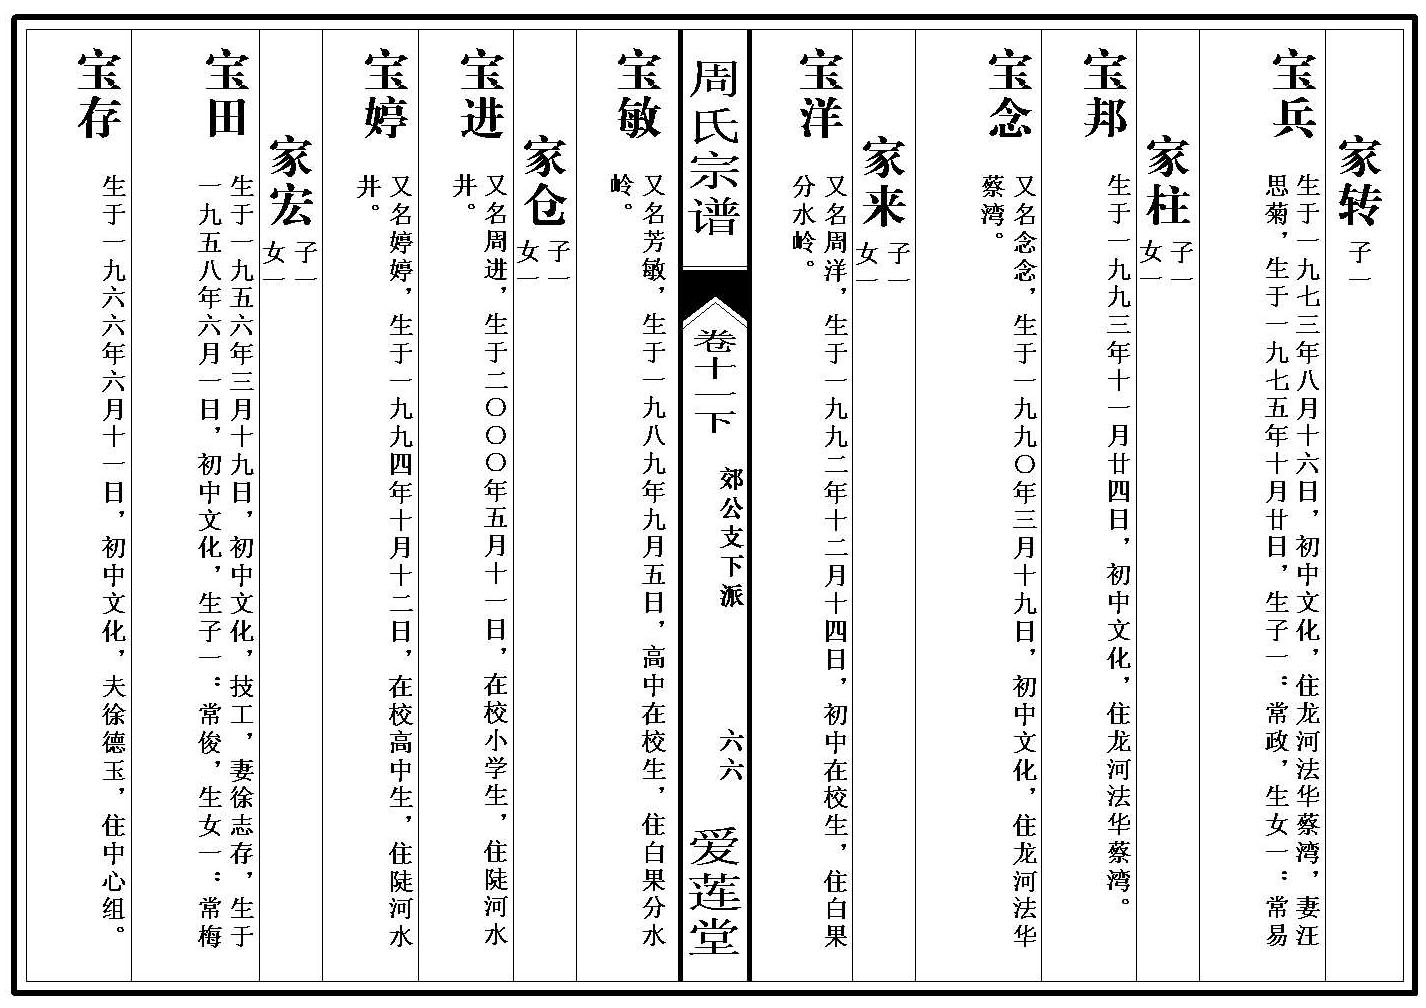 家转 子一
宝兵 生于一九七三年八月十六日，初中文化，住龙河法华蔡湾，妻汪
思菊，生于一九七五年十月廿日，生子一：常政，生女一：常易
家柱 子一
女一
宝邦 生于一九九三年十一月廿四日，初中文化，住龙河法华蔡湾。
宝念 又名念念，生于一九九〇年三月十九日，初中文化，住龙河法华
蔡湾。
家来 子一
女一
宝洋 又名周洋，生于一九九二年十二月十四日，初中在校生，住白果
分水岭。
周氏宗谱
卷十一下
郊公支下派
六六
爱莲堂
宝敏 又名芳敏，生于一九八九年九月五日，高中在校生，住白果分水
岭。
家仓 子一
女一
宝进 又名周进，生于二〇〇〇年五月十一日，在校小学生，住陡河水
井。
宝婷 又名婷婷，生于一九九四年十月十二日，在校高中生，住陡河水
井。
家宏 子一
女一
宝田 生于一九五六年三月十九日，初中文化，技工，妻徐志存，生于
一九五八年六月一日，初中文化，生子一：常俊，生女一：常梅
宝存 生于一九六六年六月十一日，初中文化，夫徐德玉，住中心组。